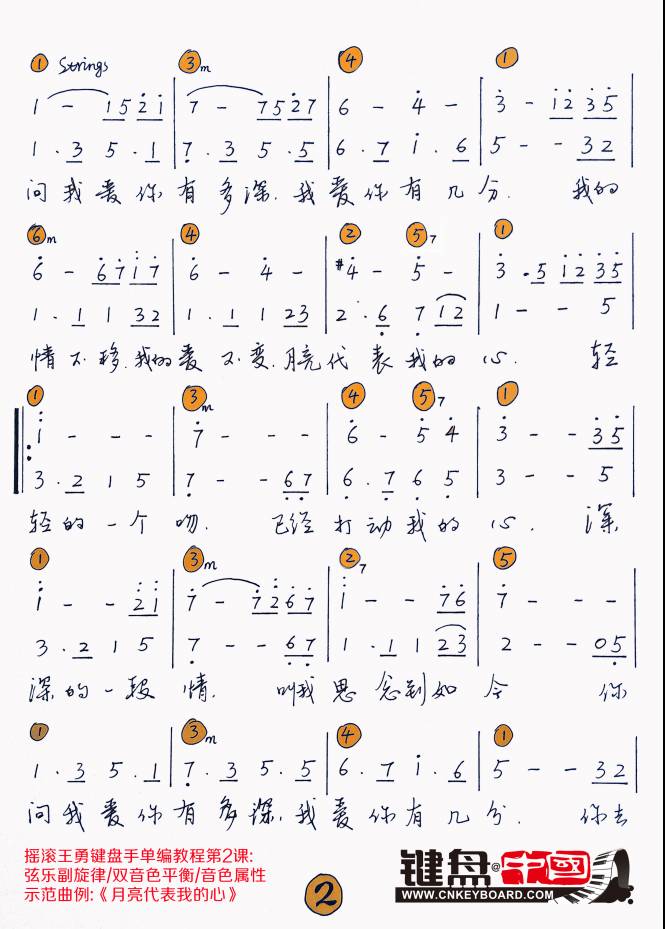 ① Strings ③m ④ ①
1 - 1 5 2̇ 1̇ | 7 - 7 5 2̇ 7 | 6 - 4̇ - | 3̇ - 1̇ 2̇ 3̇ 5̇
1 · 3 5 · 1 | 7̣ · 3 5 · 5 | 6 · 7 1̇ · 6 | 5 - - 3 2
问我爱你有多深.我爱你有几分. 我的
⑥m ④ ② ⑤7 ①
6̇ - 6̇ 7̇ 1̇ 7̇ | 6̇ - 4̇ - | #4̇ - 5̇ - | 3̇ · 5 1̇ 2̇ 3̇ 5̇
1 · 1 1 3 2 | 1 · 1 1 2 3 | 2 · 6̣ 7̣ 1 2 | 1 - - 5
情不移.我的爱不变.月亮代表我的心. 轻
① ③m ④ ⑤7 ①
1̇ - - - | 7̇ - - - | 6̇ - 5̇ 4̇ | 3̇ - - 3̇ 5̇
3 · 2 1 5 | 7̣ - - 6̣ 7̣ | 6̣ · 7̣ 6̣ 5̣ | 3 - - 5
轻的一个吻. 已经打动我的心. 深
① ③m ②7 ⑤
1̇ - - 2̇ 1̇ | 7̇ - 7̇ 2̇ 6̇ 7̇ | 1̇ - - 7̇ 6̇ | 7̇ - - -
3 · 2 1 5 | 7̣ - - 6̣ 7̣ | 1 · 1 1 2 3 | 2 - - 0 5̣
深的一段情. 叫我思念到如今 你
① ③m ④ ①
1 · 3 5 · 1 | 7̣ · 3 5 · 5 | 6 · 7 1̇ · 6 | 5 - - 3 2
问我爱你有多深,我爱你有几分. 你去
摇滚王勇键盘手单编教程第2课:
弦乐副旋律/双音色平衡/音色属性
示范曲例:《月亮代表我的心》
2
键盘@中國
WWW.CNKEYBOARD.COM